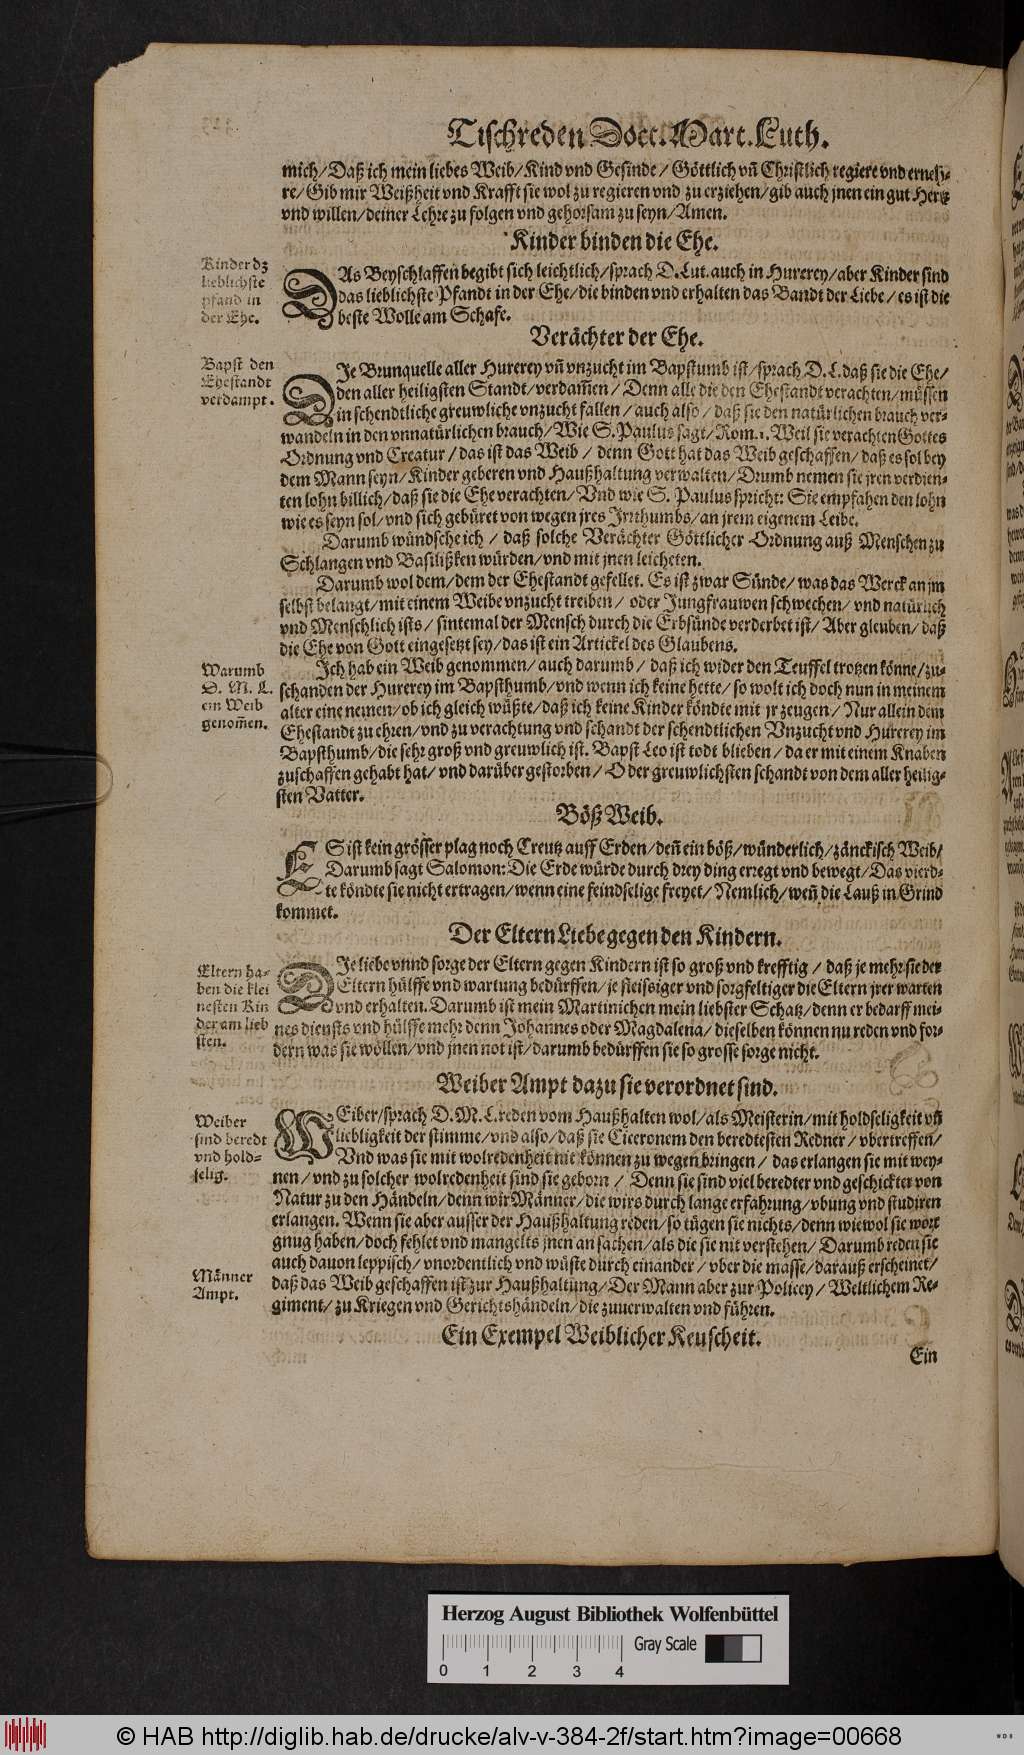 Tischreden Doct. Mart. Luth.
mich/ Daß ich mein liebes Weib/ Kind vnd Gesinde/ Göttlich vñ Christlich regiere vnd erneh-
re/ Gib mir Weißheit vnd Krafft sie wol zu regieren vnd zu erziehen/ gib auch jnen ein gut Hertz
vnd willen/ deiner Lehre zu folgen vnd gehorsam zu seyn/ Amen.
Kinder binden die Ehe.
Kinder dz
lieblichste
pfand in
der Ehe.
DAs Beyschlaffen begibt sich leichtlich/ sprach D. Lut. auch in Hurerey/ aber Kinder sind
das lieblichste Pfandt in der Ehe/ die binden vnd erhalten das Bandt der Liebe/ es ist die
beste Wolle am Schafe.
Verächter der Ehe.
Bapst den
Ehestandt
verdampt.
DIe Brunquelle aller Hurerey vñ vnzucht im Bapstumb ist/ sprach D. L. daß sie die Ehe/
den aller heiligsten Standt/ verdam̄en/ Denn alle die den Ehestandt verachten/ müssen
in schendtliche greuwliche vnzucht fallen/ auch also/ daß sie den natürlichen brauch ver-
wandeln in den vnnatürlichen brauch/ Wie S. Paulus sagt/ Rom. 1. Weil sie verachten Gottes
Ordnung vnd Creatur/ das ist das Weib/ denn Gott hat das Weib geschaffen/ daß es sol bey
dem Mann seyn/ Kinder geberen vnd Haußhaltung verwalten/ Drumb nemen sie jren verdien-
ten lohn billich/ daß sie die Ehe verachten/ Vnd wie S. Paulus spricht: Sie empfahen den lohn
wie es seyn sol/ vnd sich gebüret von wegen jres Irrthumbs/ an jrem eigenem Leibe.
Darumb wündsche ich/ daß solche Verächter Göttlicher Ordnung auß Menschen zu
Schlangen vnd Basilißken würden/ vnd mit jnen leicheten.
Darumb wol dem/ dem der Ehestandt gefellet. Es ist zwar Sünde/ was das Werck an jm
selbst belangt/ mit einem Weibe vnzucht treiben/ oder Jungfrauwen schwechen/ vnd natürlich
vnd Menschlich ists/ sintemal der Mensch durch die Erbsünde verderbet ist/ Aber gleuben/ daß
die Ehe von Gott eingesetzt sey/ das ist ein Artickel des Glaubens.
Warumb
D. M. L.
ein Weib
genom̄en.
Ich hab ein Weib genommen/ auch darumb/ daß ich wider den Teuffel trotzen könne/ zu-
schanden der Hurerey im Bapsthumb/ vnd wenn ich keine hette/ so wolt ich doch nun in meinem
alter eine nemen/ ob ich gleich wüßte/ daß ich keine Kinder köndte mit jr zeugen/ Nur allein dem
Ehestandt zu ehren/ vnd zu verachtung vnd schandt der schendtlichen Vnzucht vnd Hurerey im
Bapsthumb/ die sehr groß vnd greuwlich ist. Bapst Leo ist todt blieben/ da er mit einem Knaben
zuschaffen gehabt hat/ vnd darüber gestorben/ O der greuwlichsten schandt von dem aller heilig-
sten Vatter.
Böß Weib.
ES ist kein grösser plag noch Creutz auff Erden/ deñ ein böß/ wünderlich/ zänckisch Weib/
Darumb sagt Salomon: Die Erde würde durch drey ding erregt vnd bewegt/ Das vierd-
te köndte sie nicht ertragen/ wenn eine feindselige freyet/ Nemlich/ weñ die Lauß in Grind
kommet.
Der Eltern Liebe gegen den Kindern.
Eltern ha-
ben die klei
nesten Kin
der am lieb
sten.
DIe liebe vnnd sorge der Eltern gegen Kindern ist so groß vnd krefftig/ daß je mehr sie der
Eltern hülffe vnd wartung bedürffen/ je fleissiger vnd sorgfeltiger die Eltern jrer warten
vnd erhalten. Darumb ist mein Martinichen mein liebster Schatz/ denn er bedarff mei-
nes diensts vnd hülffe mehr denn Johannes oder Magdalena/ dieselben können nu reden vnd for-
dern was sie wöllen/ vnd jnen not ist/ darumb bedürffen sie so grosse sorge nicht.
Weiber Ampt dazu sie verordnet sind.
Weiber
sind beredt
vnd hold-
selig.
WEiber/ sprach D. M. L. reden vom Haußhalten wol/ als Meisterin/ mit holdseligkeit vñ
liebligkeit der stimme/ vnd also/ daß sie Ciceronem den beredtesten Redner/ vbertreffen/
Vnd was sie mit wolredenheit nit können zu wegen bringen/ das erlangen sie mit wey-
nen/ vnd zu solcher wolredenheit sind sie geborn/ Denn sie sind viel beredter vnd geschickter von
Natur zu den Händeln/ denn wir Männer/ die wirs durch lange erfahrung/ vbung vnd studiren
erlangen. Wenn sie aber ausser der Haußhaltung reden/ so tügen sie nichts/ denn wiewol sie wort
gnug haben/ doch fehlet vnd mangelts jnen an sachen/ als die sie nit verstehen/ Darumb reden sie
auch dauon leppisch/ vnordentlich vnd wüste durch einander/ vber die masse/ darauß erscheinet/
Männer
Ampt.
daß das Weib geschaffen ist zur Haußhaltung/ Der Mann aber zur Policey/ Weltlichem Re-
giment/ zu Kriegen vnd Gerichtshändeln/ die zuuerwalten vnd führen.
Ein Exempel Weiblicher Keuscheit.
Ein
Herzog August Bibliothek Wolfenbüttel
Gray Scale
0 1 2 3 4
© HAB http://diglib.hab.de/drucke/alv-v-384-2f/start.htm?image=00668